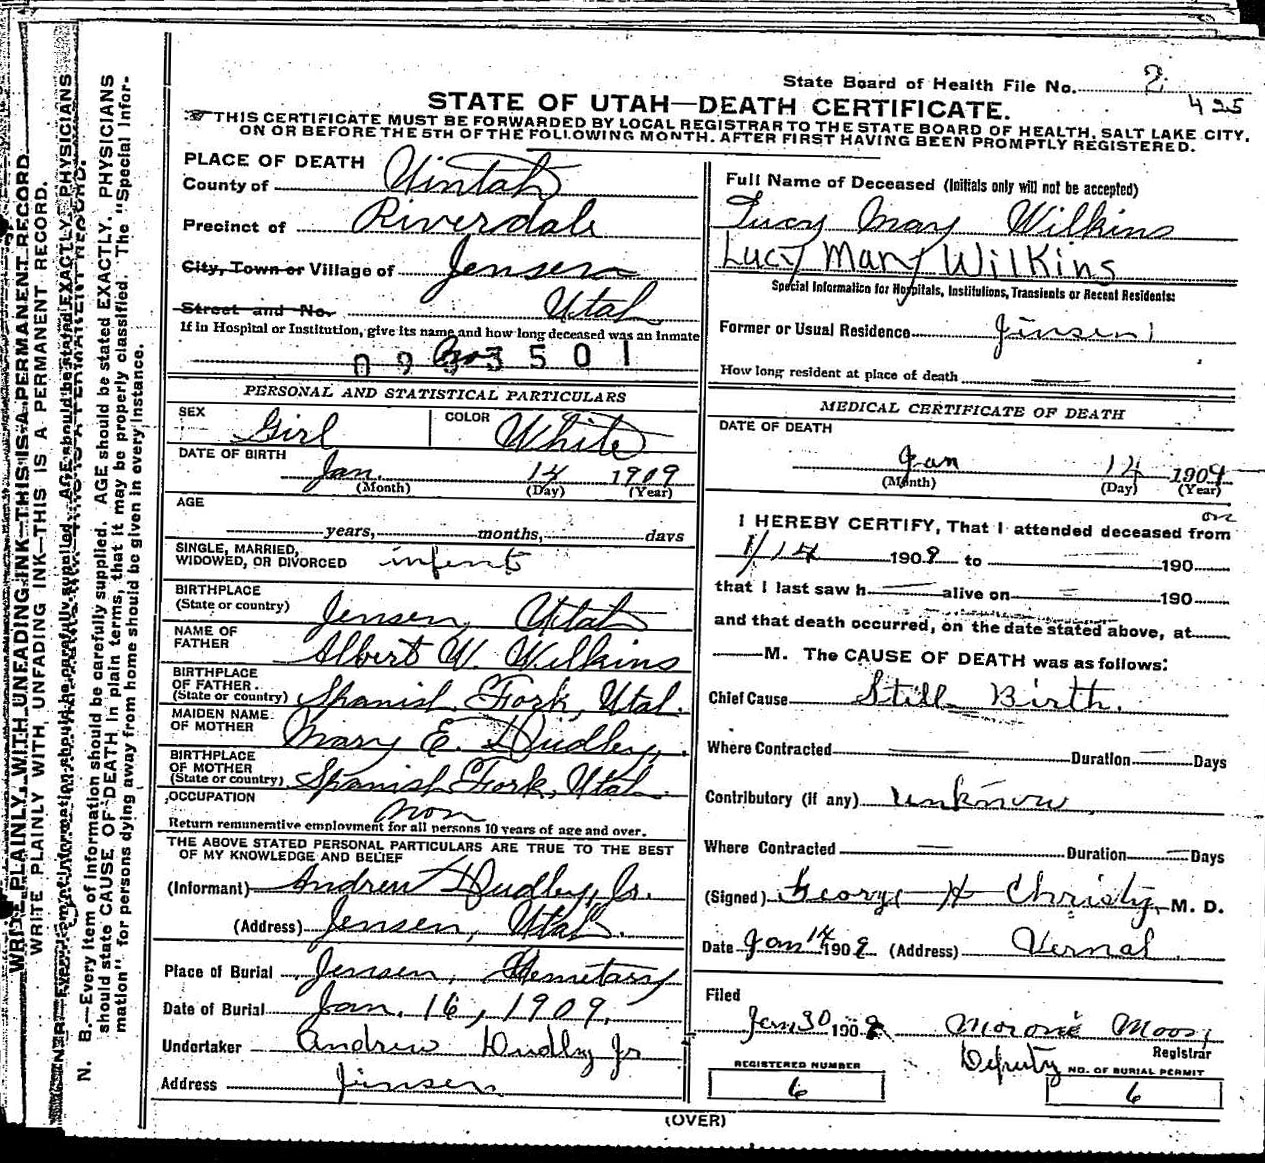 State Board of Health File No. 2
425
STATE OF UTAH—DEATH CERTIFICATE.
THIS CERTIFICATE MUST BE FORWARDED BY LOCAL REGISTRAR TO THE STATE BOARD OF HEALTH, SALT LAKE CITY,
ON OR BEFORE THE 5TH OF THE FOLLOWING MONTH. AFTER FIRST HAVING BEEN PROMPTLY REGISTERED.
PLACE OF DEATH
County of Uintah
Precinct of Riverdale
City, Town or Village of Jensen
Street and No. Utah
If in Hospital or Institution, give its name and how long deceased was an Inmate
3501
PERSONAL AND STATISTICAL PARTICULARS
SEX Girl COLOR White
DATE OF BIRTH
Jan. 14 1909
(Month) (Day) (Year)
AGE
years, months, days
SINGLE, MARRIED,
WIDOWED, OR DIVORCED infent
BIRTHPLACE
(State or country) Jensen, Utah
NAME OF
FATHER Albert W. Wilkins
BIRTHPLACE
OF FATHER
(State or country) Spanish Fork, Utah.
MAIDEN NAME
OF MOTHER Mary E. Dudley,
BIRTHPLACE
OF MOTHER
(State or country) Spanish Fork, Utah.
OCCUPATION non
Return remunerative employment for all persons 10 years of age and over.
THE ABOVE STATED PERSONAL PARTICULARS ARE TRUE TO THE BEST
OF MY KNOWLEDGE AND BELIEF
(Informant) Andrew Dudley, Jr.
(Address) Jensen, Utah.
Place of Burial Jensen, Cemetary
Date of Burial Jan. 16, 1909.
Undertaker Andrew Dudley Jr
Address Jinsen
Full Name of Deceased (Initials only will not be accepted)
Lucy May Wilkins
Lucy Mary Wilkins
Special Information for Hospitals, Institutions, Transients or Recent Residents:
Former or Usual Residence Jinsen
How long resident at place of death
MEDICAL CERTIFICATE OF DEATH
DATE OF DEATH
Jan 14 1909
(Month) (Day) (Year)
I HEREBY CERTIFY, That I attended deceased from on
1/14 1909 to 190
that I last saw h alive on 190
and that death occurred, on the date stated above, at
M. The CAUSE OF DEATH was as follows:
Chief Cause Still Birth.
Where Contracted Duration Days
Contributory (if any) unknow
Where Contracted Duration Days
(Signed) George H Christy, M. D.
Date Jan 14 1909 (Address) Vernal
Filed
Jan 30 1909 Moroni
Registrar
Deputy
REGISTERED NUMBER
6
NO. OF BURIAL PERMIT
6
(OVER)
WRITE PLAINLY, WITH UNFADING INK—THIS IS A PERMANENT RECORD
WRITE PLAINLY WITH UNFADING INK—THIS IS A PERMANENT RECORD.
N. B.—Every item of information should be carefully supplied. AGE should be stated EXACTLY. PHYSICIANS
should state CAUSE OF DEATH in plain terms, that it may be properly classified. The "Special Infor-
mation" for persons dying away from home should be given in every instance.